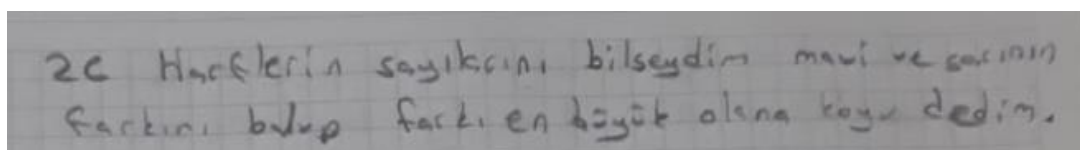 2c Harflerin sayılarını bilseydim mavi ve sarının
farkını bulup farkı en büyük olana koyu dedim.